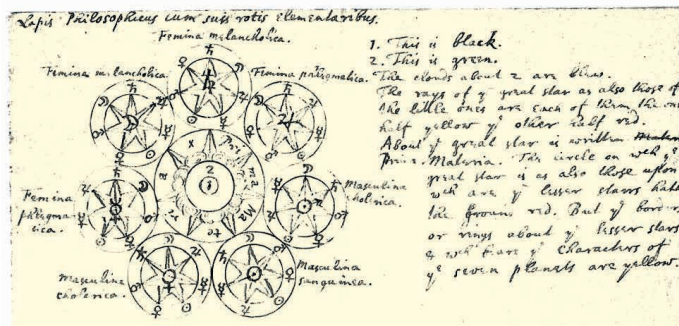 Lapis Philosophicus cum suis rotis Elementaribus.
Femina melancholica.
Femina melancholica.
Femina phlegmatica.
Femina
phlegma-
tica.
Masculina
cholerica.
Masculina
cholerica.
Masculina
sanguinea.
1. This is black.
2. This is green.
The clouds about 2 are blew.
The rays of yͤ great star as also those of
the little ones are each of them the one
half yellow yͤ other half red.
About yͤ great star is written
Prima. Materia. The circle on wch yͤ
great star is as also those upon
wch are yͤ lesser starrs hath
the ground red. But yͤ borders
or rings about yͤ lesser stars
& wch beare yͤ characters of
yͤ seven planets are yellow.